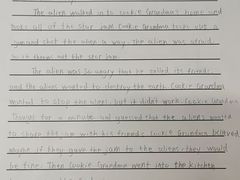 The alien walked in to cookie Grandma's home and
took all of the star jam. Cookie Grandma took out a
gun and shot the alien a way. The alien was afraid
so it threw out the star jam.
The alien was so angry that he called its friends
and the aliens wanted to destroy the earth. Cookie Grandma
wanted to stop the aliens, but it didn't work. Cookie Grandma
thought for a minute and guessed that the aliens wanted
to share the jam with his friends. Cookie Grandma believed
maybe if they gave the jam to the aliens, they would
be fine. Then Cookie Grandma went into the kitchen